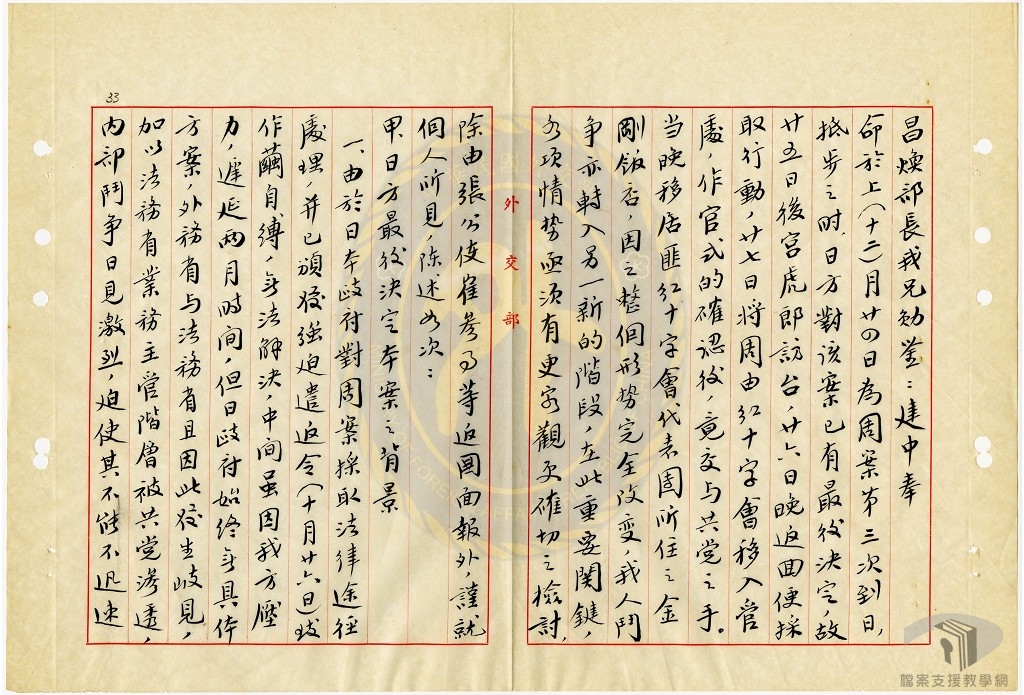 昌煥部長我兄勛鑒：建中奉
命於上（十二）月廿四日為周案第三次到日，
抵步之时，日方對該案已有最後決定，故
廿五日後宮虎郎訪台，廿六日晚返回便採
取行動，廿七日將周由紅十字會移入管
處，作官式的確認後，竟交与共党之手。
当晚移居匪紅十字會代表團所住之金
剛飯店，因之整個形势完全改变，我人鬥
争亦轉入另一新的階段，在此重要関鍵，
各項情势亟须有更客觀更確切之檢討，
外交部
除由張公使崔參事等返國面報外，謹就
個人所見，陈述如次：
甲、日方最後決定本案之背景
一、由於日本政府對周案採取法律途徑
處理，并已頒發強迫遣返令（十月廿六日）致
作繭自縛，無法解決，中间虽因我方壓
力，遲延两月时间，但日政府始终無具体
方案，外務省与法務省且因此發生岐見，
加以法務省業務主管階層被共党滲透，
内部鬥争日見激烈，迫使其不能不迅速
33
檔案支援教學網